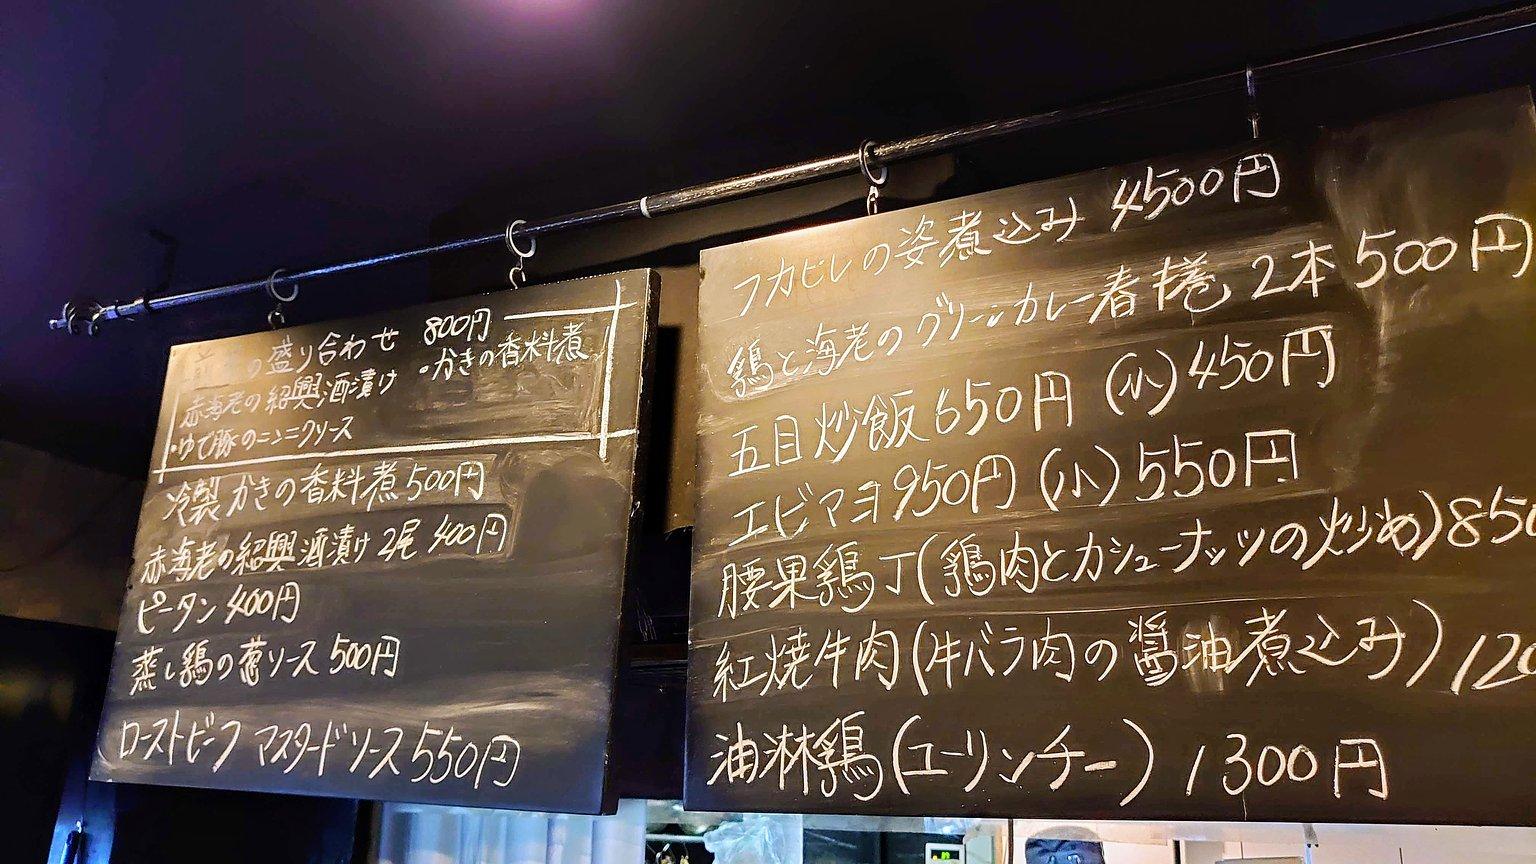 の盛り合わせ 800円
・かきの香料煮
赤海老の紹興酒漬け
・ゆで豚のニンニクソース
冷製 かきの香料煮 500円
赤海老の紹興酒漬け 2尾 400円
ピータン 400円
蒸し鶏の葱ソース 500円
ローストビーフ マスタードソース 550円
フカヒレの姿煮込み 4500円
鶏と海老のグリーンカレー春捲 2本 500円
五目炒飯 650円 (小) 450円
エビマヨ 950円 (小) 550円
腰果鶏丁(鶏肉とカシューナッツの炒め) 850
紅焼牛肉(牛バラ肉の醤油煮込み) 120
油淋鶏(ユーリンチー) 1300円